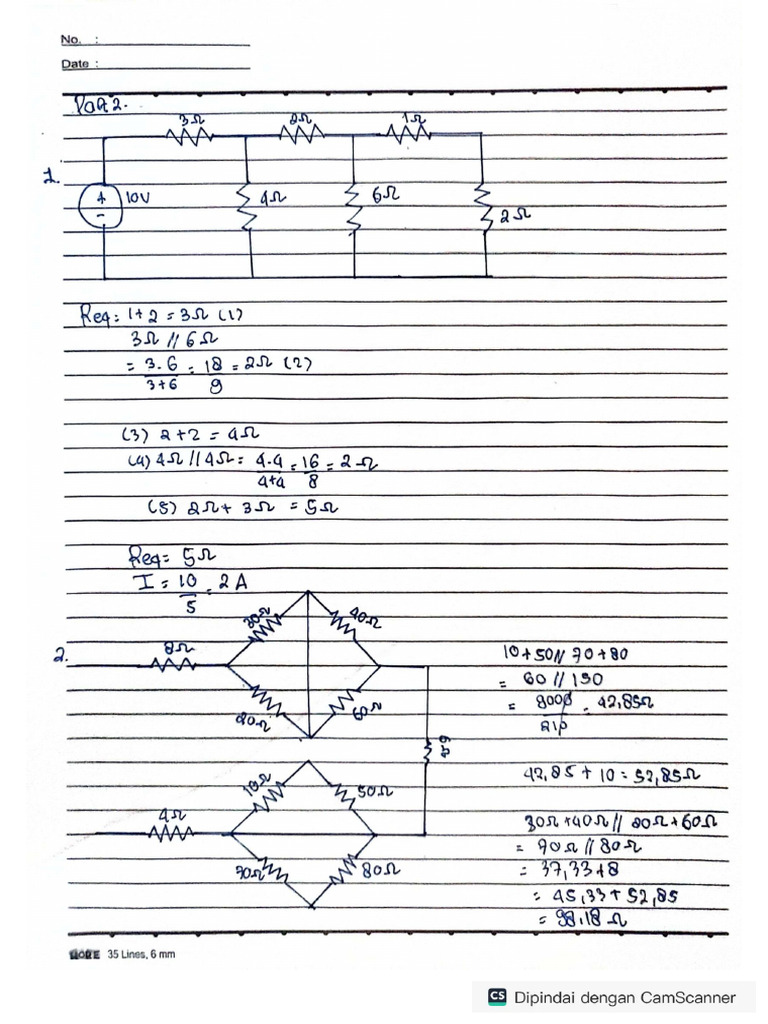 No. :
Date :
Part 2.
3Ω 2Ω 1Ω
1.
+ - 10V 4Ω 6Ω 2Ω
Req: 1+2 = 3Ω (1)
3Ω // 6Ω
= 3.6 = 18 = 2Ω (2)
3+6 9
(3) 2+2 = 4Ω
(4) 4Ω // 4Ω = 4.4 = 16 = 2Ω
4+4 8
(5) 2Ω + 3Ω = 5Ω
Req = 5Ω
I = 10 = 2 A
5
2.
8Ω 30Ω 40Ω
20Ω 60Ω
4Ω 10Ω 50Ω
70Ω 80Ω
10+50 // 70+80
= 60 // 150
= 9000 = 42,85Ω
210
42,85 + 10 = 52,85Ω
30Ω + 40Ω // 20Ω + 60Ω
= 70Ω // 80Ω
= 37,33 + 8
= 45,33 + 52,85
= 98.18 Ω
35 Lines, 6 mm
CS Dipindai dengan CamScanner